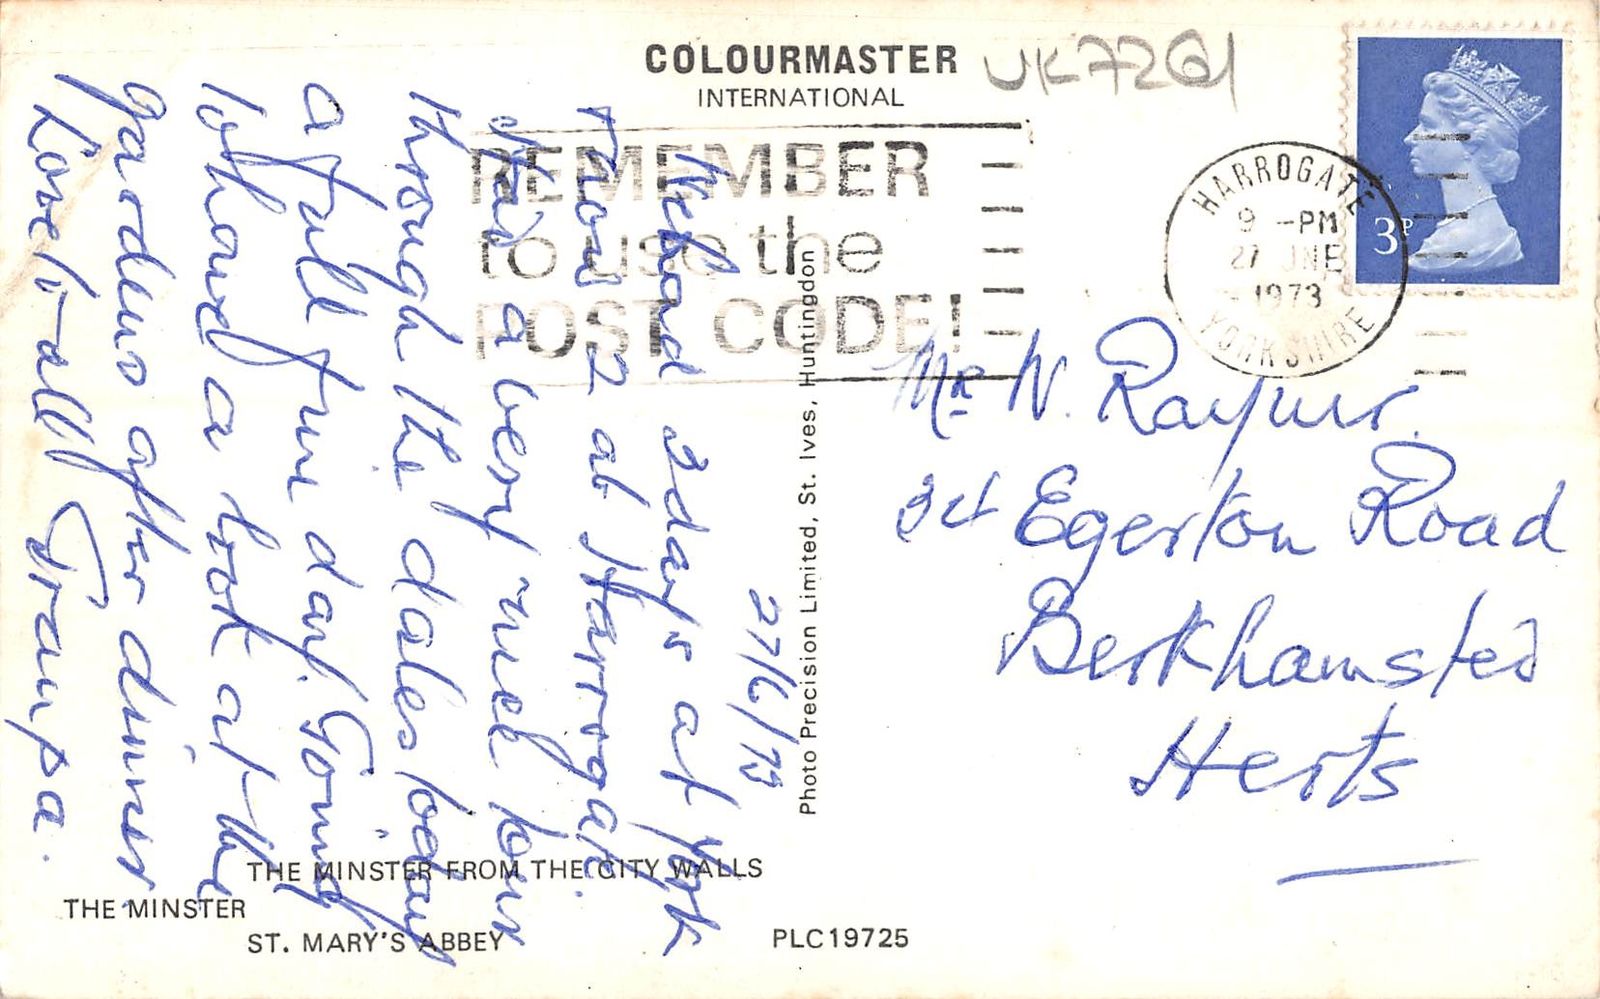 COLOURMASTER
INTERNATIONAL
UK7261
REMEMBER
to use the
POST CODE!
HARROGATE
9 -PM
27 JNE
1973
YORKSHIRE
3P
27/6/73
We had 3 days at York
Now 2 at Harrogate.
Had a very nice tour
through the dales today
a full fine day. Going
to have a look at the
gardens after dinner
Love to all Grampa.
Mr N. Rayner.
34 Egerton Road
Berkhamsted
Herts
Photo Precision Limited, St. Ives, Huntingdon
THE MINSTER FROM THE CITY WALLS
THE MINSTER
ST. MARY'S ABBEY
PLC19725